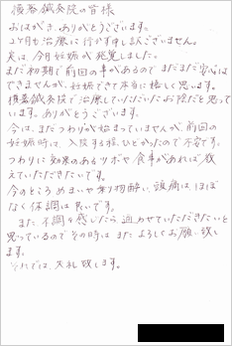 優春鍼灸院の皆様
おはがき、ありがとうございます。
2ヶ月も治療に行けず申し訳ございません。
実は、今月妊娠が発覚しました。
まだ初期で前回の事があるのでまだまだ安心は
できませんが、妊娠でき本当に嬉しく思います。
優春鍼灸院で治療していただいたお陰だと思って
います。ありがとうございます。
今は、まだつわりが始まっていませんが、前回の
妊娠時は、入院する程ひどかったので不安です。
つわりに効果のあるツボや食事があれば教
えていただきたいです。
今のところめまいや乗り物酔い、頭痛はほぼ
なく体調は良いです。
また、不調を感じたら通わせていただきたいと
思っているのでその時はまたよろしくお願い致し
ます。
それでは、失礼致します。